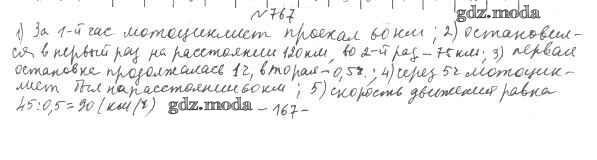 №767 gdz.moda
1) За 1-й час мотоциклист проехал 60 км; 2) остановил-
ся в первый раз на расстоянии 120км, во 2-й раз – 75км; 3) первая
остановка продолжалась 1ч, вторая – 0,5ч; 4) через 5ч мотоцик-
лист был на расстоянии 60км; 5) скорость движения равна
45:0,5=90 (км/ч) gdz.moda – 167 –